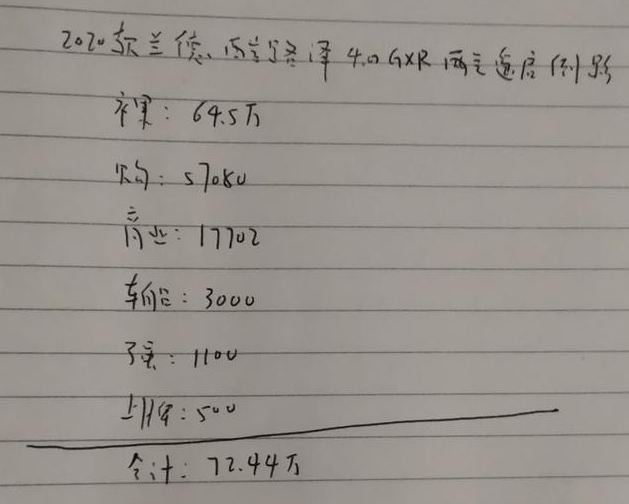 2020款兰德酷路泽 4.0 GXR
裸: 64.5万
购: 57080
商业: 17702
车船: 3000
强: 1100
上牌: 500
合计: 72.44万